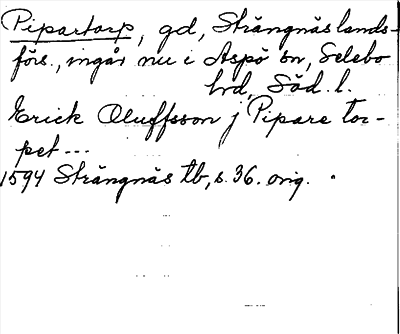 Pipartorp, gd, Strängnäs lands-
förs., ingår nu i Aspö sn, Selebo
hd, Söd. l.
Erick Oluffsson j Pipare tor-
pet...
1594 Strängnäs tb, s. 36. orig.